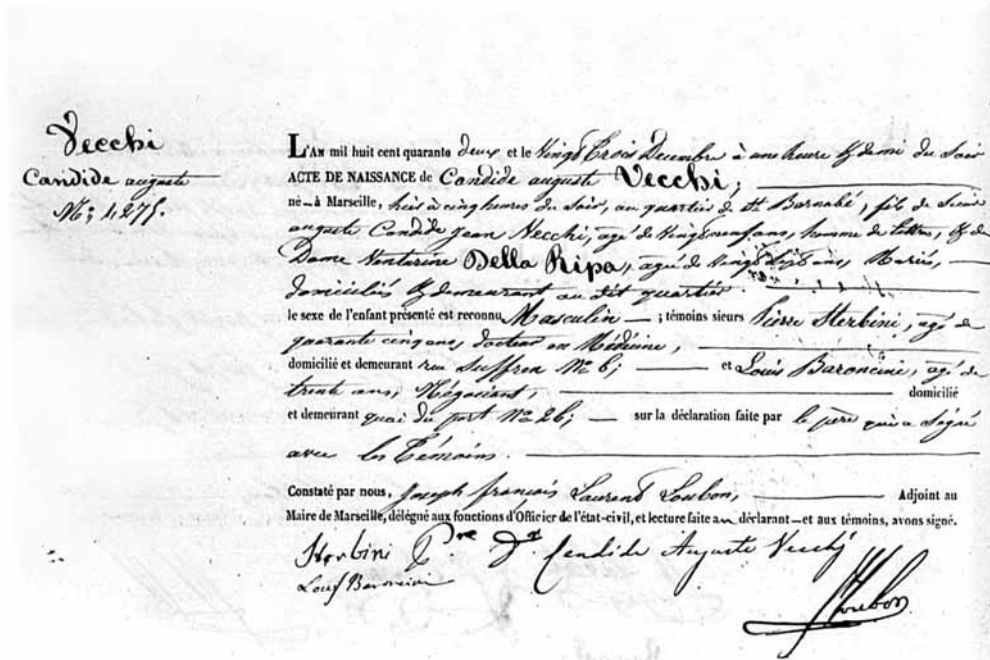 Vecchi
Candide auguste
No 4,275.
L'AN mil huit cent quarante deux et le Vingt Trois Decembre à une heure & demi du Soir
ACTE DE NAISSANCE de Candide auguste Vecchi,
né à Marseille, hier à cinq heures du Soir, au quartier de St Barnabé, fils de Sieur
auguste Candide Jean Vecchi, agé de Vingt neuf ans, homme de lettres, & de
Dame Della Ripa, agée de Vingt ans, Mariés,
domiciliés & demeurant au dit quartier
le sexe de l'enfant présenté est reconnu Masculin ; témoins sieurs Pierre Sterbini, agé de
quarante cinq ans, docteur en Médecine,
domicilié et demeurant rue Suffren No 6; et Louis Baroncini, agé de
trente ans, Négociant, domicilié
et demeurant quai du port No 26; sur la déclaration faite par le père qui a Signé
avec les Témoins.
Constaté par nous, Joseph françois Laurent Loubon, Adjoint au
Maire de Marseille, délégué aux fonctions d'Officier de l'état-civil, et lecture faite au déclarant et aux témoins, avons signé.
Sterbini Candide Auguste Vecchj
Louis Baroncini
Loubon